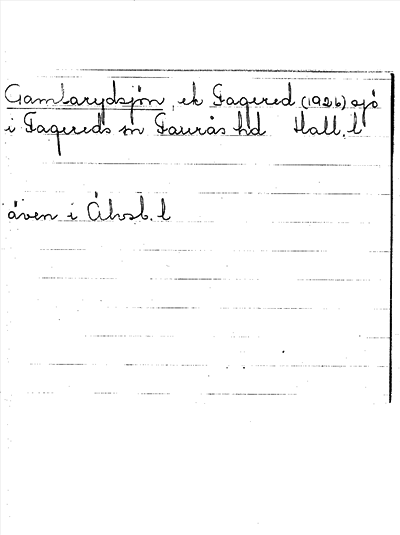 Gamlarydsjön, ek Fagered (1926) sjö
i Fagereds sn Faurås hd Hall. l
även i Älvsb. l